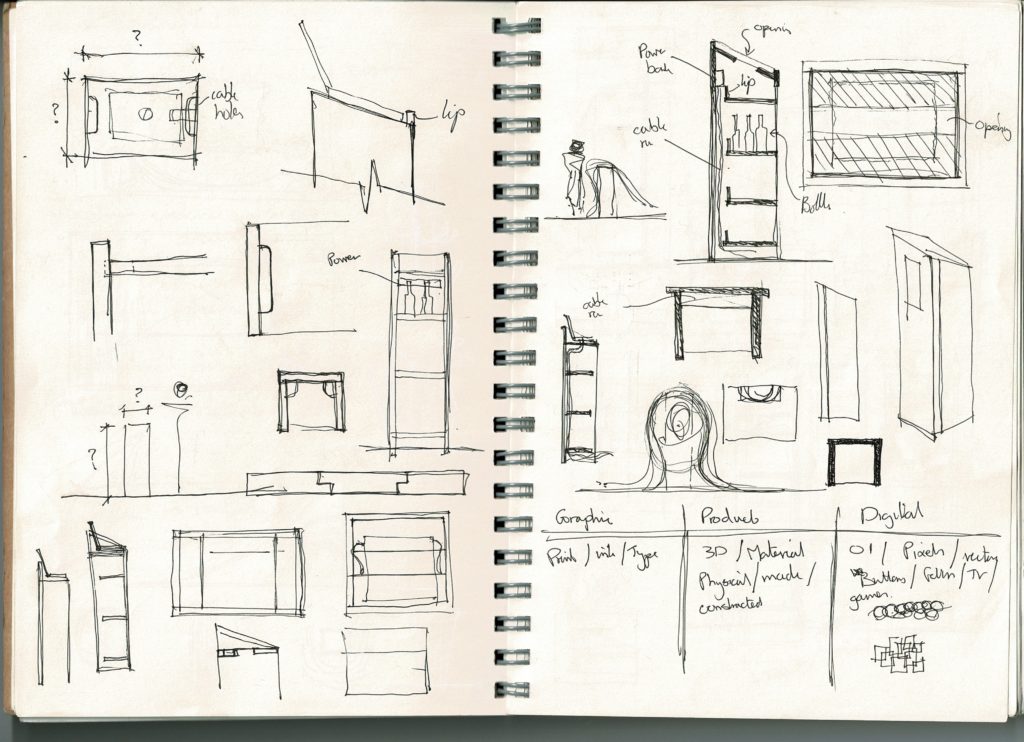 ?
?
cable
holes
lip
Power
?
?
opening
Power
lip
cable
opening
cable
Graphic
Product
Digital
Print / ink / Type
3D / Material
Physical / made /
constructed
01 / Pixels /
Buttons / / TV /
games.